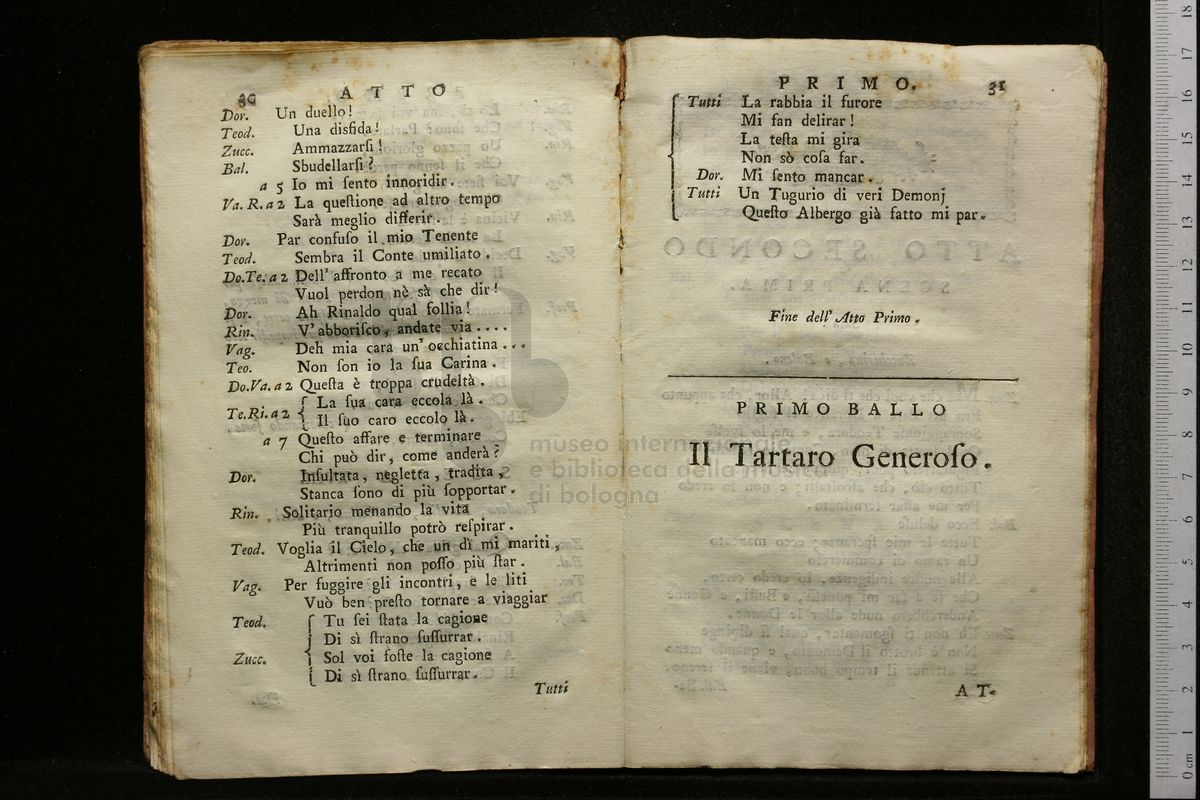 30 ATTO
Dor. Un duello!
Teod. Una disfida!
Zucc. Ammazzarſi!
Bal. Sbudellarſi?
a 5 Io mi ſento innoridir.
Va. R. a 2 La queſtione ad altro tempo
Sarà meglio differir.
Dor. Par confuſo il mio Tenente
Teod. Sembra il Conte umiliato.
Do. Te. a 2 Dell' affronto a me recato
Vuol perdon nè sà che dir!
Dor. Ah Rinaldo qual follia!
Rin. V' abboriſco, andate via ....
Vag. Deh mia cara un' occhiatina ...
Teo. Non ſon io la ſua Carina.
Do. Va. a 2 Queſta è troppa crudeltà.
Te. Ri. a 2 { La ſua cara eccola là.
Il ſuo caro eccolo là.
a 7 Queſto affare e terminare
Chi può dir, come anderà?
Dor. Inſultata, negletta, tradita,
Stanca ſono di più ſopportar.
Rin. Solitario menando la vita
Più tranquillo potrò reſpirar.
Teod. Voglia il Cielo, che un dì mi mariti,
Altrimenti non poſſo più ſtar.
Vag. Per fuggire gli incontri, e le liti
Vuò ben preſto tornare a viaggiar
Teod. { Tu ſei ſtata la cagione
Di sì ſtrano ſuſſurrar.
Zucc. { Sol voi foſte la cagione
Di sì ſtrano ſuſſurrar.
Tutti
PRIMO. 31
Tutti La rabbia il furore
Mi fan delirar!
La teſta mi gira
Non sò coſa far.
Dor. Mi ſento mancar.
Tutti Un Tugurio di veri Demonj
Queſto Albergo già fatto mi par.
Fine dell' Atto Primo.
PRIMO BALLO
Il Tartaro Generoſo.
AT-
museo internazionale
e biblioteca della musica
di bologna
18
17
16
15
14
13
12
11
10
9
8
7
6
5
4
3
2
1
0 cm